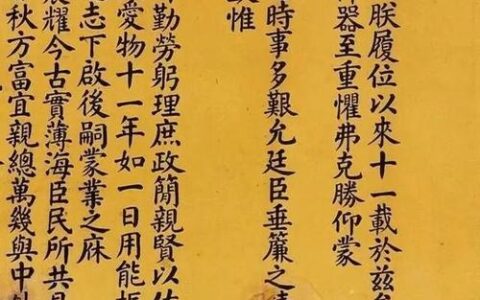 朕履位以來十一載於茲
神器至重懼弗克勝仰蒙
時事多艱允廷臣垂簾之請
惟
勤勞躬理庶政簡親賢以佐
愛物十一年如一日用能振
志下啟後嗣蒙業之庥
耀今古實薄海臣民所共見
秋方富宜親總萬幾與中外